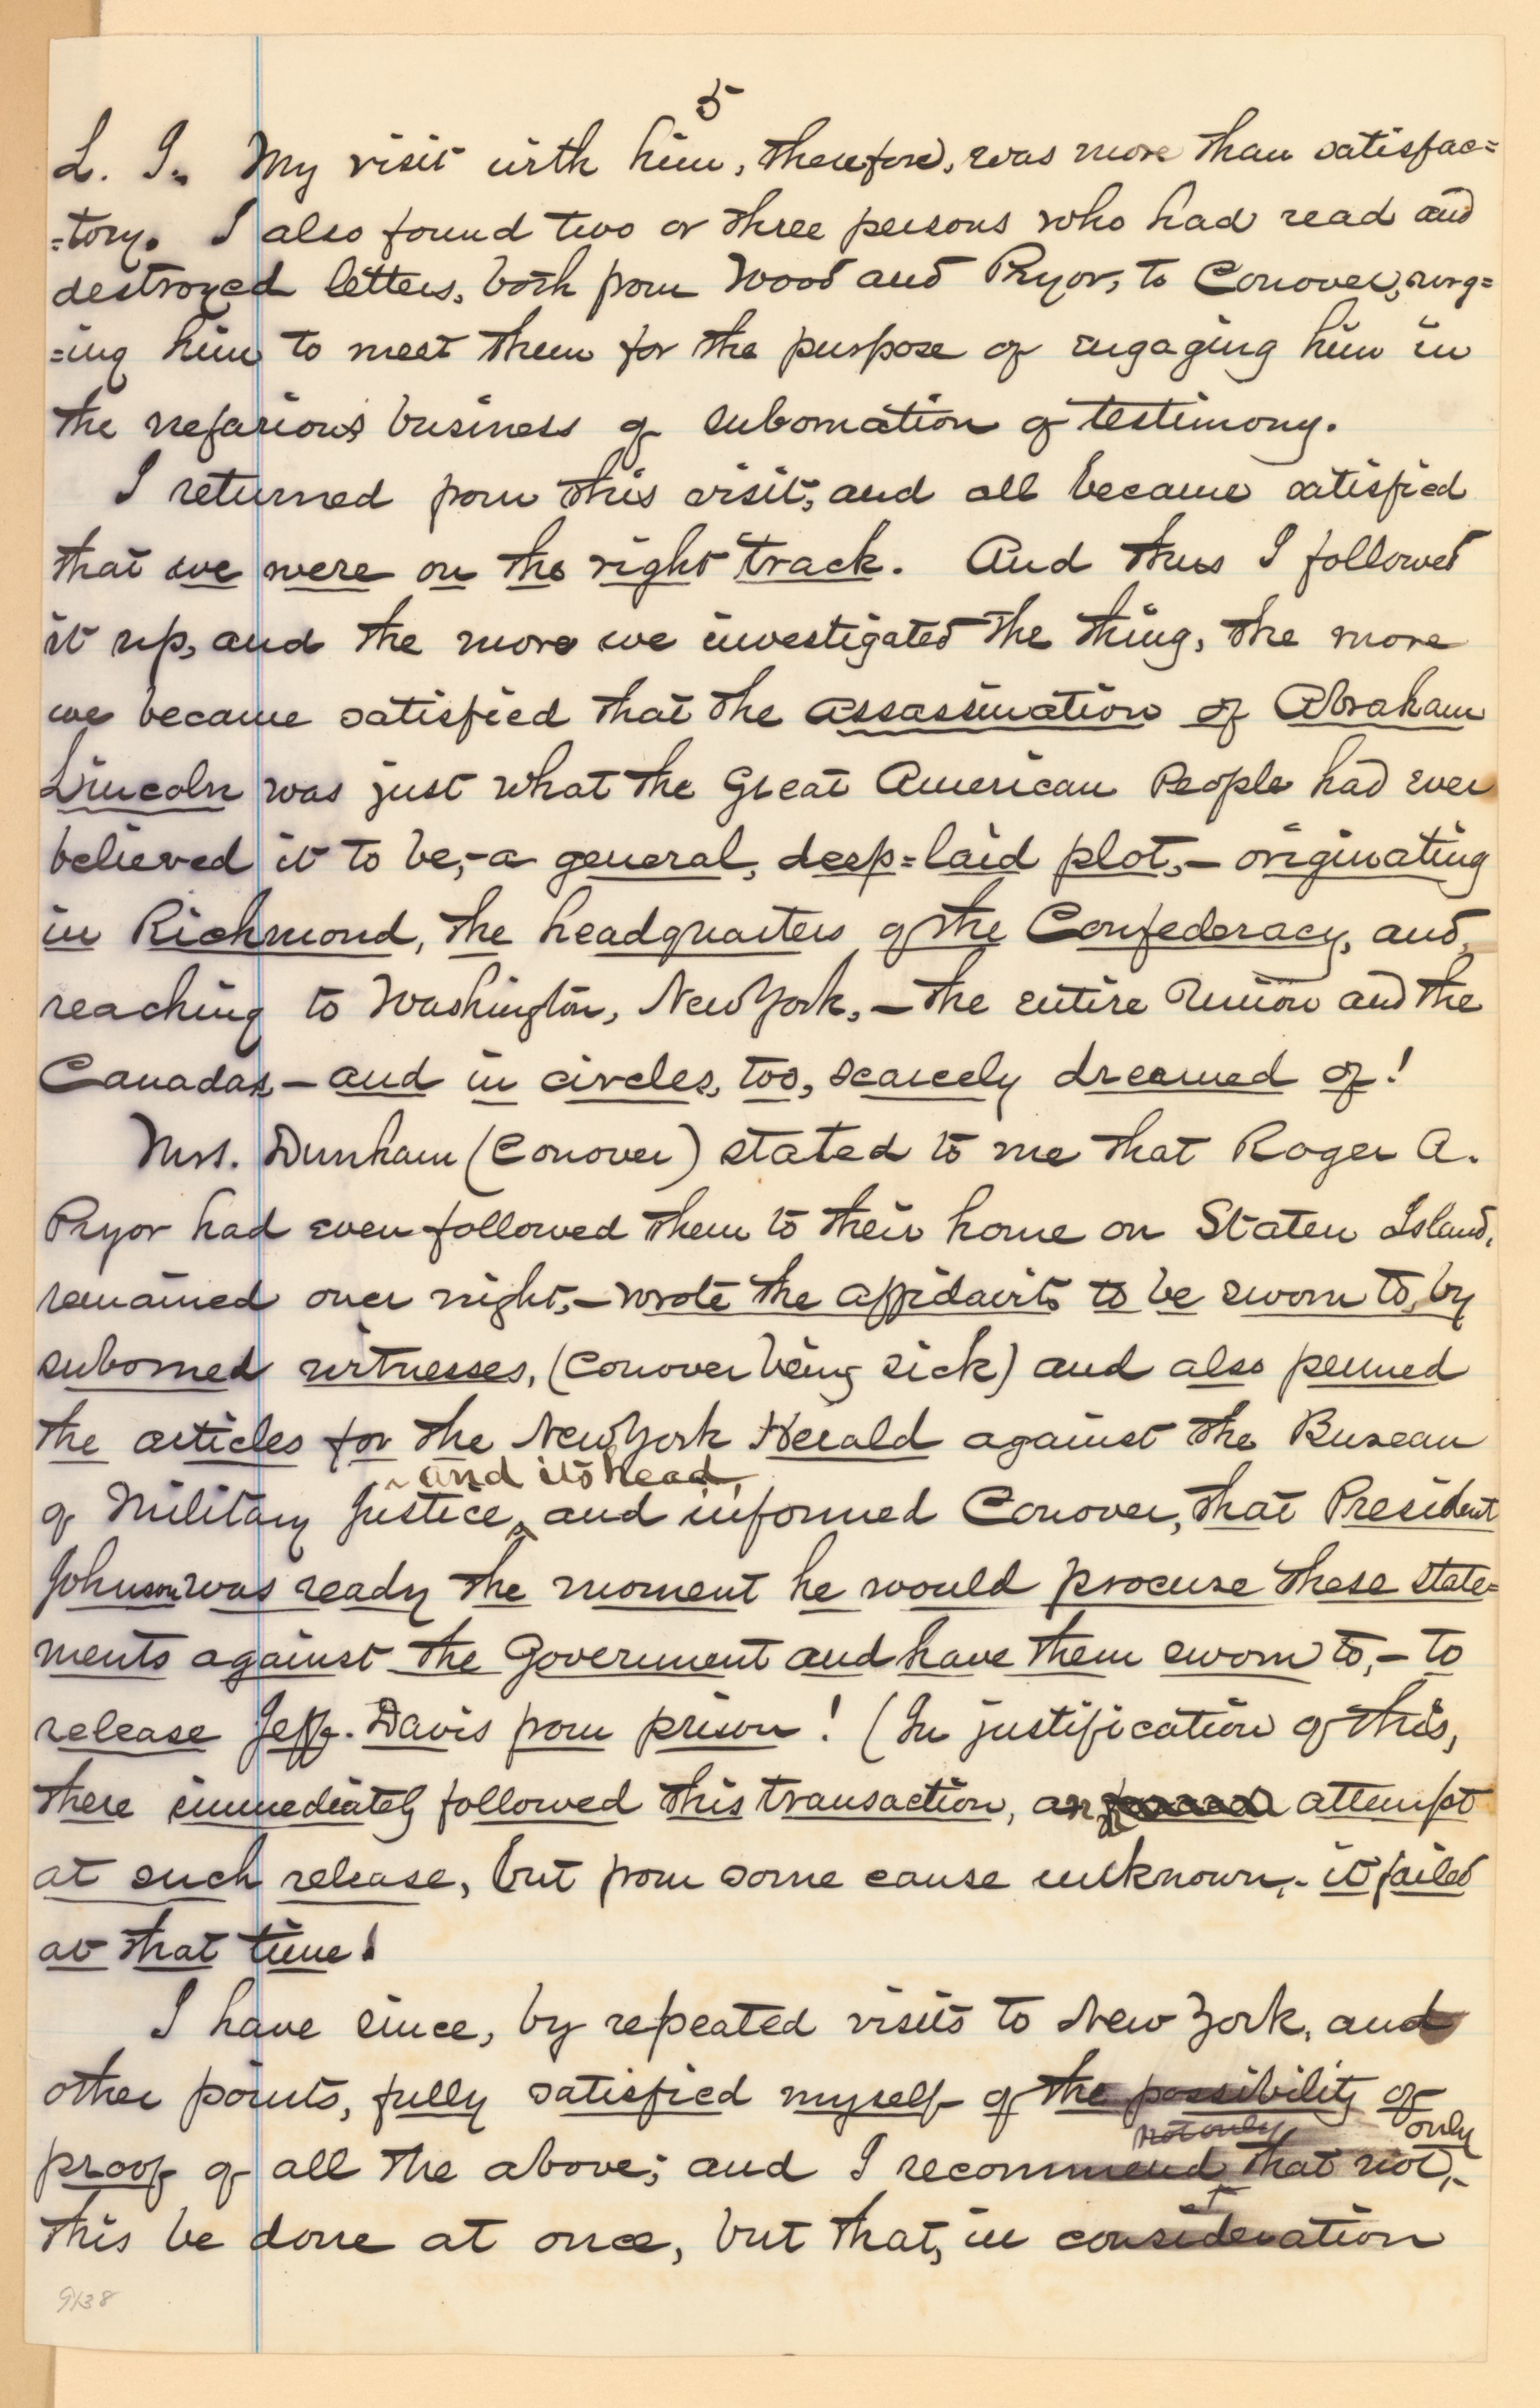 5
L. I. My visit with him, therefore, was more than satisfac=
=tory. I also found two or three persons who had read and
destroyed letters, both from Wood and Pryor, to Conover, urg=
=ing him to meet them for the purpose of engaging him in
the nefarious business of subornation of testimony.
I returned from this visit, and all became satisfied
that we were on the right track. And thus I followed
it up, and the more we investigated the thing, the more
we became satisfied that the assassination of Abraham
Lincoln was just what the Great American People had ever
believed it to be,-a general, deep=laid plot,- originating
in Richmond, the headquarters of the Confederacy, and,
reaching to Washington, New York, - the entire Union and the
Canadas, - and in circles, too, scarcely dreamed of!
Mrs. Dunham (Conover) stated to me that Roger A.
Pryor had even followed them to their home on Staten Island,
remained over night, - wrote the affidavits to be sworn to, by
suborned witnesses, (Conover being sick) and also penned
the articles for the New York Herald against the Bureau
and its head,
of Military Justice, and informed Conover, that President
Johnson was ready the moment he would procure these state=
ments against the Government and have them sworn to, - to
release Jeff. Davis from prison! (In justification of this,
there immediately followed this transaction, an attempt
at such release, but from some cause unknown, - it failed
at that time!
I have since, by repeated visits to New York, and
other points, fully satisfied myself of the possibility of
not only only
proof of all the above; and I recommend that not, -
this be done at once, but that, in consideration
9138